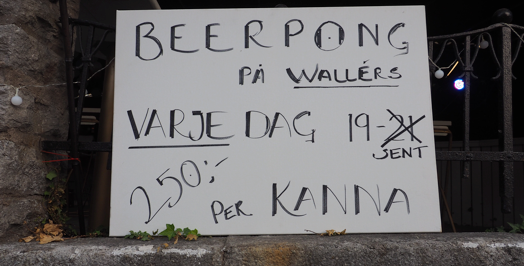 BEERPONG
PÅ WALLÉRS
VARJE DAG 19-21
SENT
250:- PER KANNA